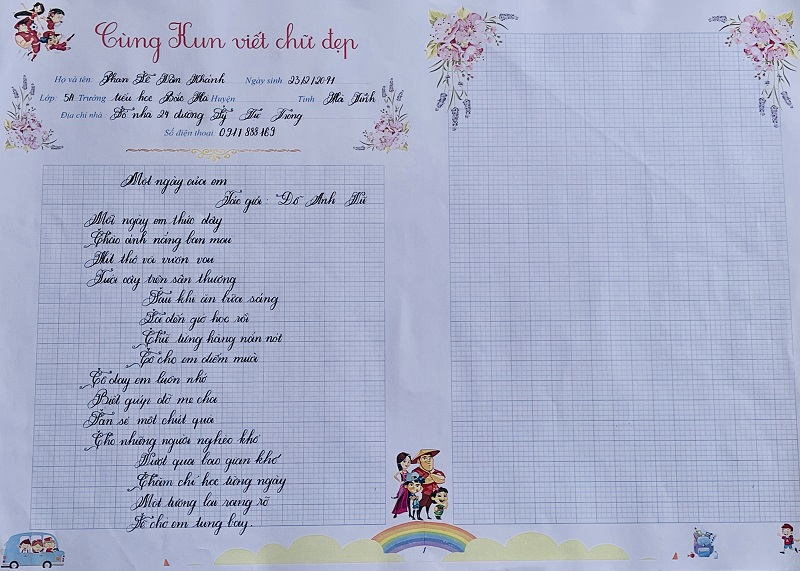 Cùng Kun viết chữ đẹp
Họ và tên: Phan Lê Vân Khánh Ngày sinh 23/2/2011
Lớp: 5A Trường tiểu học Bắc Hà Huyện Tỉnh Hà Tĩnh
Địa chỉ nhà: Số nhà 24 đường Lý Tự Trọng
Số điện thoại: 0911 888 169
Một ngày của em
Tác giả: Đỗ Anh Vũ
Mỗi ngày em thức dậy
Chào ánh nắng ban mai
Hít thở và vươn vai
Tưới cây trên sân thượng
Sau khi ăn bữa sáng
Là đến giờ học rồi
Chữ từng hàng nắn nót
Cô cho em điểm mười
Cô dạy em luôn nhớ
Biết giúp đỡ mẹ cha
San sẻ một chút quà
Cho những người nghèo khó
Vượt qua bao gian khó
Chăm chỉ học từng ngày
Một tương lai rạng rỡ
Sẽ chờ em tung bay.
1